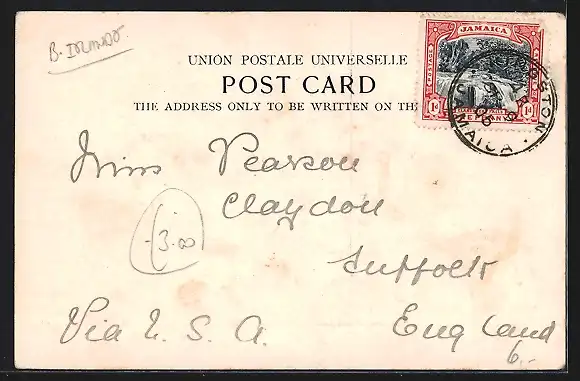 UNION POSTALE UNIVERSELLE
POST CARD
THE ADDRESS ONLY TO BE WRITTEN ON TH
JAMAICA
POSTAGE
1d 1d
KINGSTON
JAMAICA
Miss Pearson
Claydon
Suffolk
England
Via U. S. A.
3.00
6.-